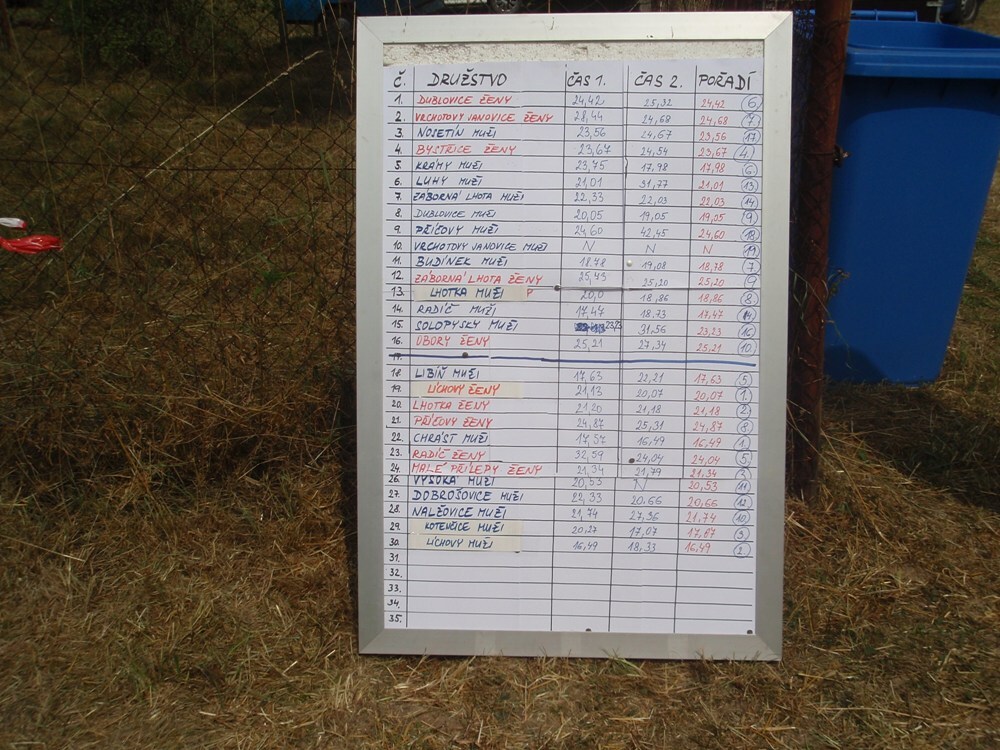 Č. DRUŽSTVO ČAS 1. ČAS 2. POŘADÍ
1. DUBLOVICE ŽENY 24,42 25,32 24,42 6
2. VRCHOTOVY JANOVICE ŽENY 28,44 24,68 24,68 7
3. NOSETÍN MUŽI 23,56 24,67 23,56 17
4. BYSTŘICE ŽENY 23,67 24,54 23,67 4.
5. KRÁMY MUŽI 23,75 17,98 17,98 6.
6. LUHY MUŽI 21,01 31,77 21,01 13
7. ZÁBORNÁ LHOTA MUŽI 22,33 22,03 22,03 14
8. DUBLOVICE MUŽI 20,05 19,05 19,05 9
9. PŘÍČOVY MUŽI 24,60 42,45 24,60 18
10. VRCHOTOVY JANOVICE MUŽI N N N 19
11. BUDÍNEK MUŽI 18,78 19,08 18,78 7
12. ZÁBORNÁ LHOTA ŽENY 25,43 25,20 25,20 9
13. LHOTKA MUŽI 20,0 18,86 18,86 8
14. RADÍČ MUŽI 17,47 18,73 17,47
15. SOLOPYSKY MUŽI 23,23 31,56 23,23 16
16. ÚBORY ŽENY 25,21 27,34 25,21 10.
17.
18. LIBÍŇ MUŽI 17,63 22,21 17,63 5
19. LÍCHOVY ŽENY 21,13 20,07 20,07 1.
20. LHOTKA ŽENY 21,20 21,18 21,18 2.
21. PŘÍČOVY ŽENY 24,87 25,31 24,87 8.
22. CHRÁST MUŽI 17,57 16,49 16,49 1.
23. RADÍČ ŽENY 32,59 24,04 24,04 5.
24. MALÉ PŘÍLEPY ŽENY 21,34 21,79 21,34 3.
26. VYSOKÁ MUŽI 20,53 N 20,53 11
27. DOBROŠOVICE MUŽI 22,33 20,66 20,66 12
28. NALŽOVICE MUŽI 21,74 27,36 21,74 10
29. KOTENČICE MUŽI 20,27 17,07 3
30. LÍCHOVY MUŽI 16,49 18,33 16,49 2.
31.
32.
33.
34.
35.